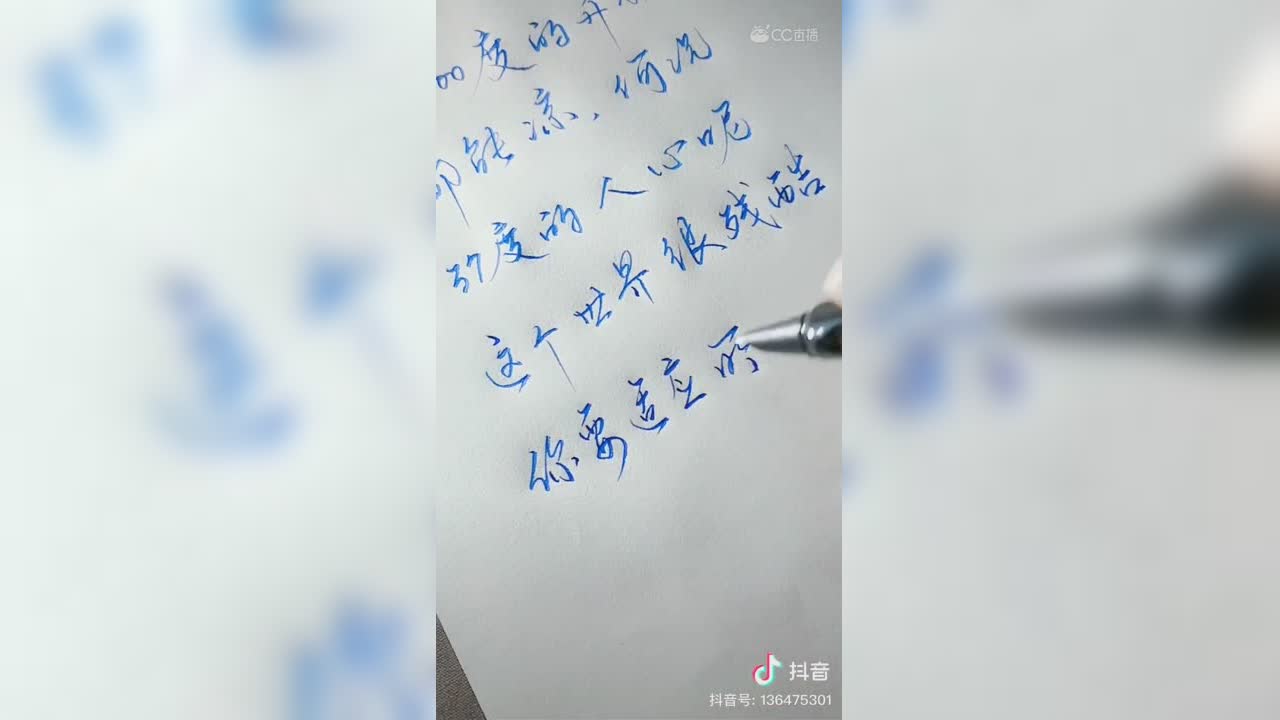 00度的开
却能凉，何况
37度的人心呢
这个世界很残酷
你要适应所
CC直播
抖音
抖音号: 136475301